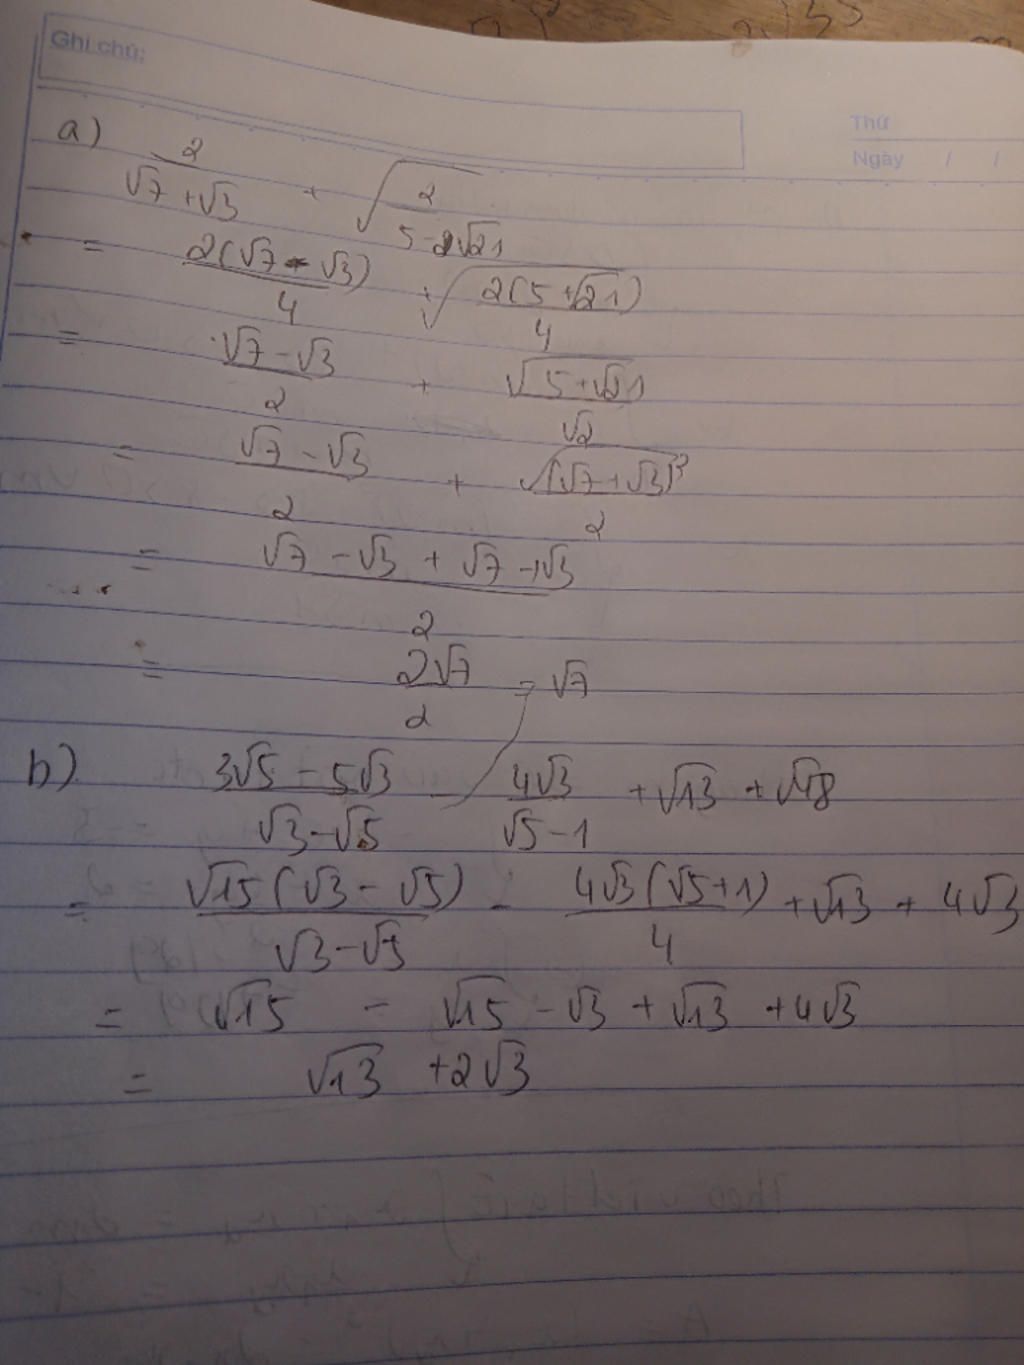 Ghi chú:
Thứ
Ngày / /
a) 2/(√7 + √3) + √(2/(5 - √21))
= 2(√7 - √3)/4 + √(2(5 + √21)/4)
= (√7 - √3)/2 + √(5 + √21)/√2
= (√7 - √3)/2 + √((√7 + √3)²)/2
= (√7 - √3 + √7 + √3)/2
= 2√7/2 = √7
b) (3√5 - 5√3)/(√3 - √5) - 4√3/(√5 - 1) + √13 + √48
= √15(√3 - √5)/(√3 - √5) - 4√3(√5 + 1)/4 + √13 + 4√3
= √15 - √15 - √3 + √13 + 4√3
= √13 + 2√3